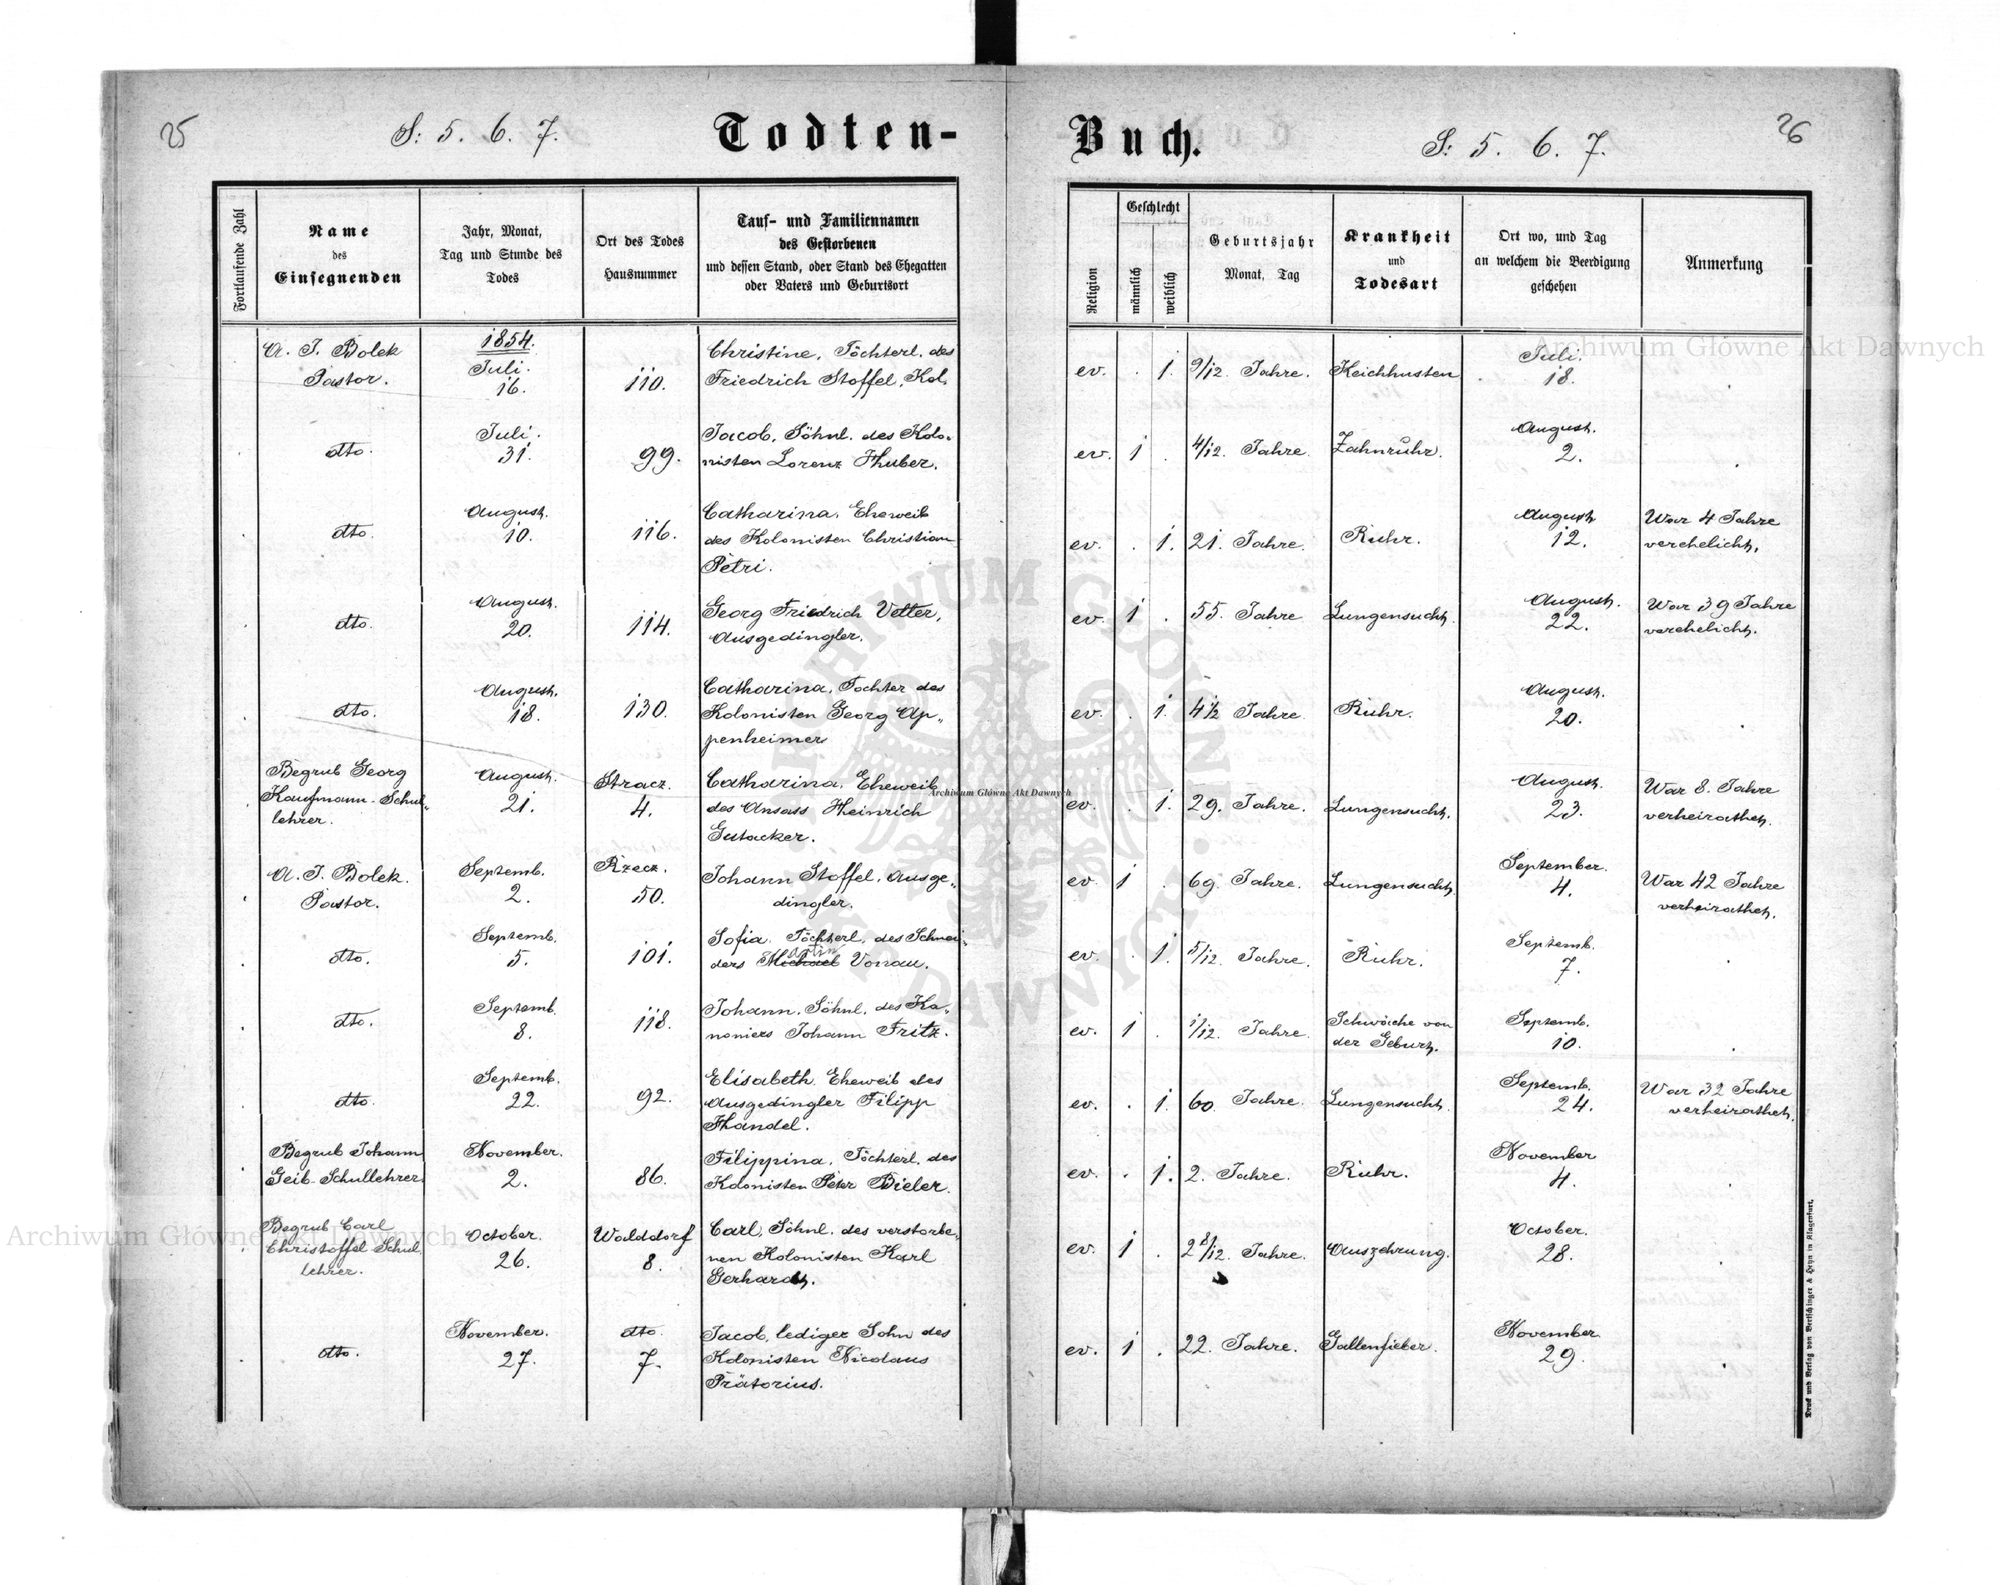 25
S: 5. 6. 7.
Todten-
Fortlaufende Zahl
Name
des
Einsegnenden
Jahr, Monat,
Tag und Stunde des
Todes
Ort des Todes
Hausnummer
Tauf- und Familiennamen
des Gestorbenen
und dessen Stand, oder Stand des Ehegatten
oder Vaters und Geburtsort
A. J. Bolek
Pastor.
1854.
Juli.
16.
110.
Christine, Töchterl. des
Friedrich Stoffel, Kol.
dto.
Juli.
31.
99.
Jacob, Söhnl. des Kolo„
nisten Lorenz Huber.
dto.
August.
10.
116.
Catharina, Eheweib
des Kolonisten Christian
Petri.
dto.
August.
20.
114.
Georg Friedrich Vetter,
Ausgedingler.
dto.
August.
18.
130.
Catharina, Tochter des
Kolonisten Georg Ap„
penheimer
Begrub Georg
Kaufmann-Schul„
lehrer.
August.
21.
Stracz.
4.
Catharina, Eheweib
des Ansass Heinrich
Gutacker.
A. J. Bolek.
Pastor.
Septemb.
2.
Rzecz.
50.
Johann Stoffel, Ausge„
dingler.
dto.
Septemb.
5.
101.
Sofia, Töchterl. des Schnei„
ders Michael Vonau.
dto.
Septemb.
8.
118.
Johann, Söhnl. des Ka„
noniers Johann Fritz.
dto.
Septemb.
22.
92.
Elisabeth, Eheweib des
Ausgedingler Filipp
Handel.
Begrub Johann
Geib-Schullehrer
November.
2.
86.
Filippina, Töchterl. des
Kolonisten Peter Bieler.
Begrub Carl
Christoffel Schul
lehrer.
October.
26.
Walddorf
8.
Carl, Söhnl. des verstorbe„
nen Kolonisten Karl
Gerhardt.
dto.
November.
27.
dto.
7.
Jacob, lediger Sohn des
Kolonisten Nicolaus
Prätorius.
Buch.
S: 5. 6. 7.
26
Religion
Geschlecht
männlich
weiblich
Geburtsjahr
Monat, Tag
Krankheit
und
Todesart
Ort wo, und Tag
an welchem die Beerdigung
geschehen
Anmerkung
ev. . 1. 9/12. Jahre. Keichhusten
Juli.
18.
ev. 1 . 4/12. Jahre. Zahnruhr.
August.
2.
ev. . 1. 21. Jahre. Ruhr.
August
12.
War 4 Jahre
verehelicht.
ev. 1 . 55. Jahre Lungensucht.
August.
22.
War 39 Jahre
verehelicht.
ev. . 1. 4½ Jahre Ruhr.
August.
20.
ev. . 1. 29. Jahre. Lungensucht.
August.
23.
War 8. Jahre
verheirathet.
ev. 1 . 69. Jahre. Lungensucht.
September.
4.
War 42 Jahre
verheirathet.
ev. . 1. 5/12. Jahre. Ruhr.
Septemb.
7.
ev. 1 . 1/12. Jahre. Schwäche von
der Geburt.
Septemb.
10.
ev. . 1. 60. Jahre. Lungensucht.
Septemb.
24.
War 32 Jahre
verheirathet.
ev. . 1. 2. Jahre. Ruhr.
November
4.
ev. 1 . 2 8/12. Jahre. Auszehrung.
October.
28.
ev. 1 . 22. Jahre. Gallenfieber.
November
29.
Druck und Verlag von Bertschinger & Heyn in Klagenfurt.
Archiwum Główne Akt Dawnych
Archiwum Główne Akt Dawnych
Archiwum Główne Akt Dawnych
ARCHIWUM GŁÓWNE AKT DAWNYCH